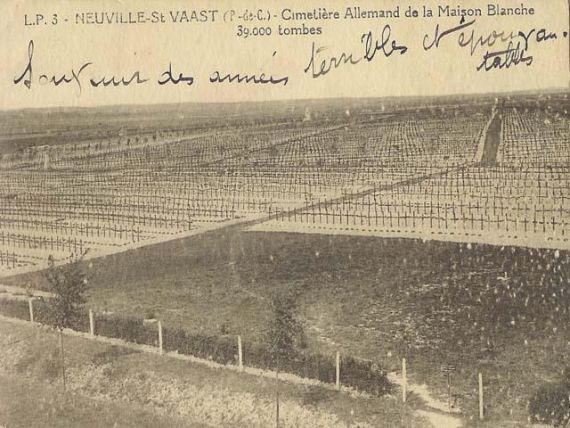 L.P. 3 - NEUVILLE-St VAAST (P-de-C.) - Cimetière Allemand de la Maison Blanche
39.000 tombes
Souvenir des années terribles et épouvan-
tables